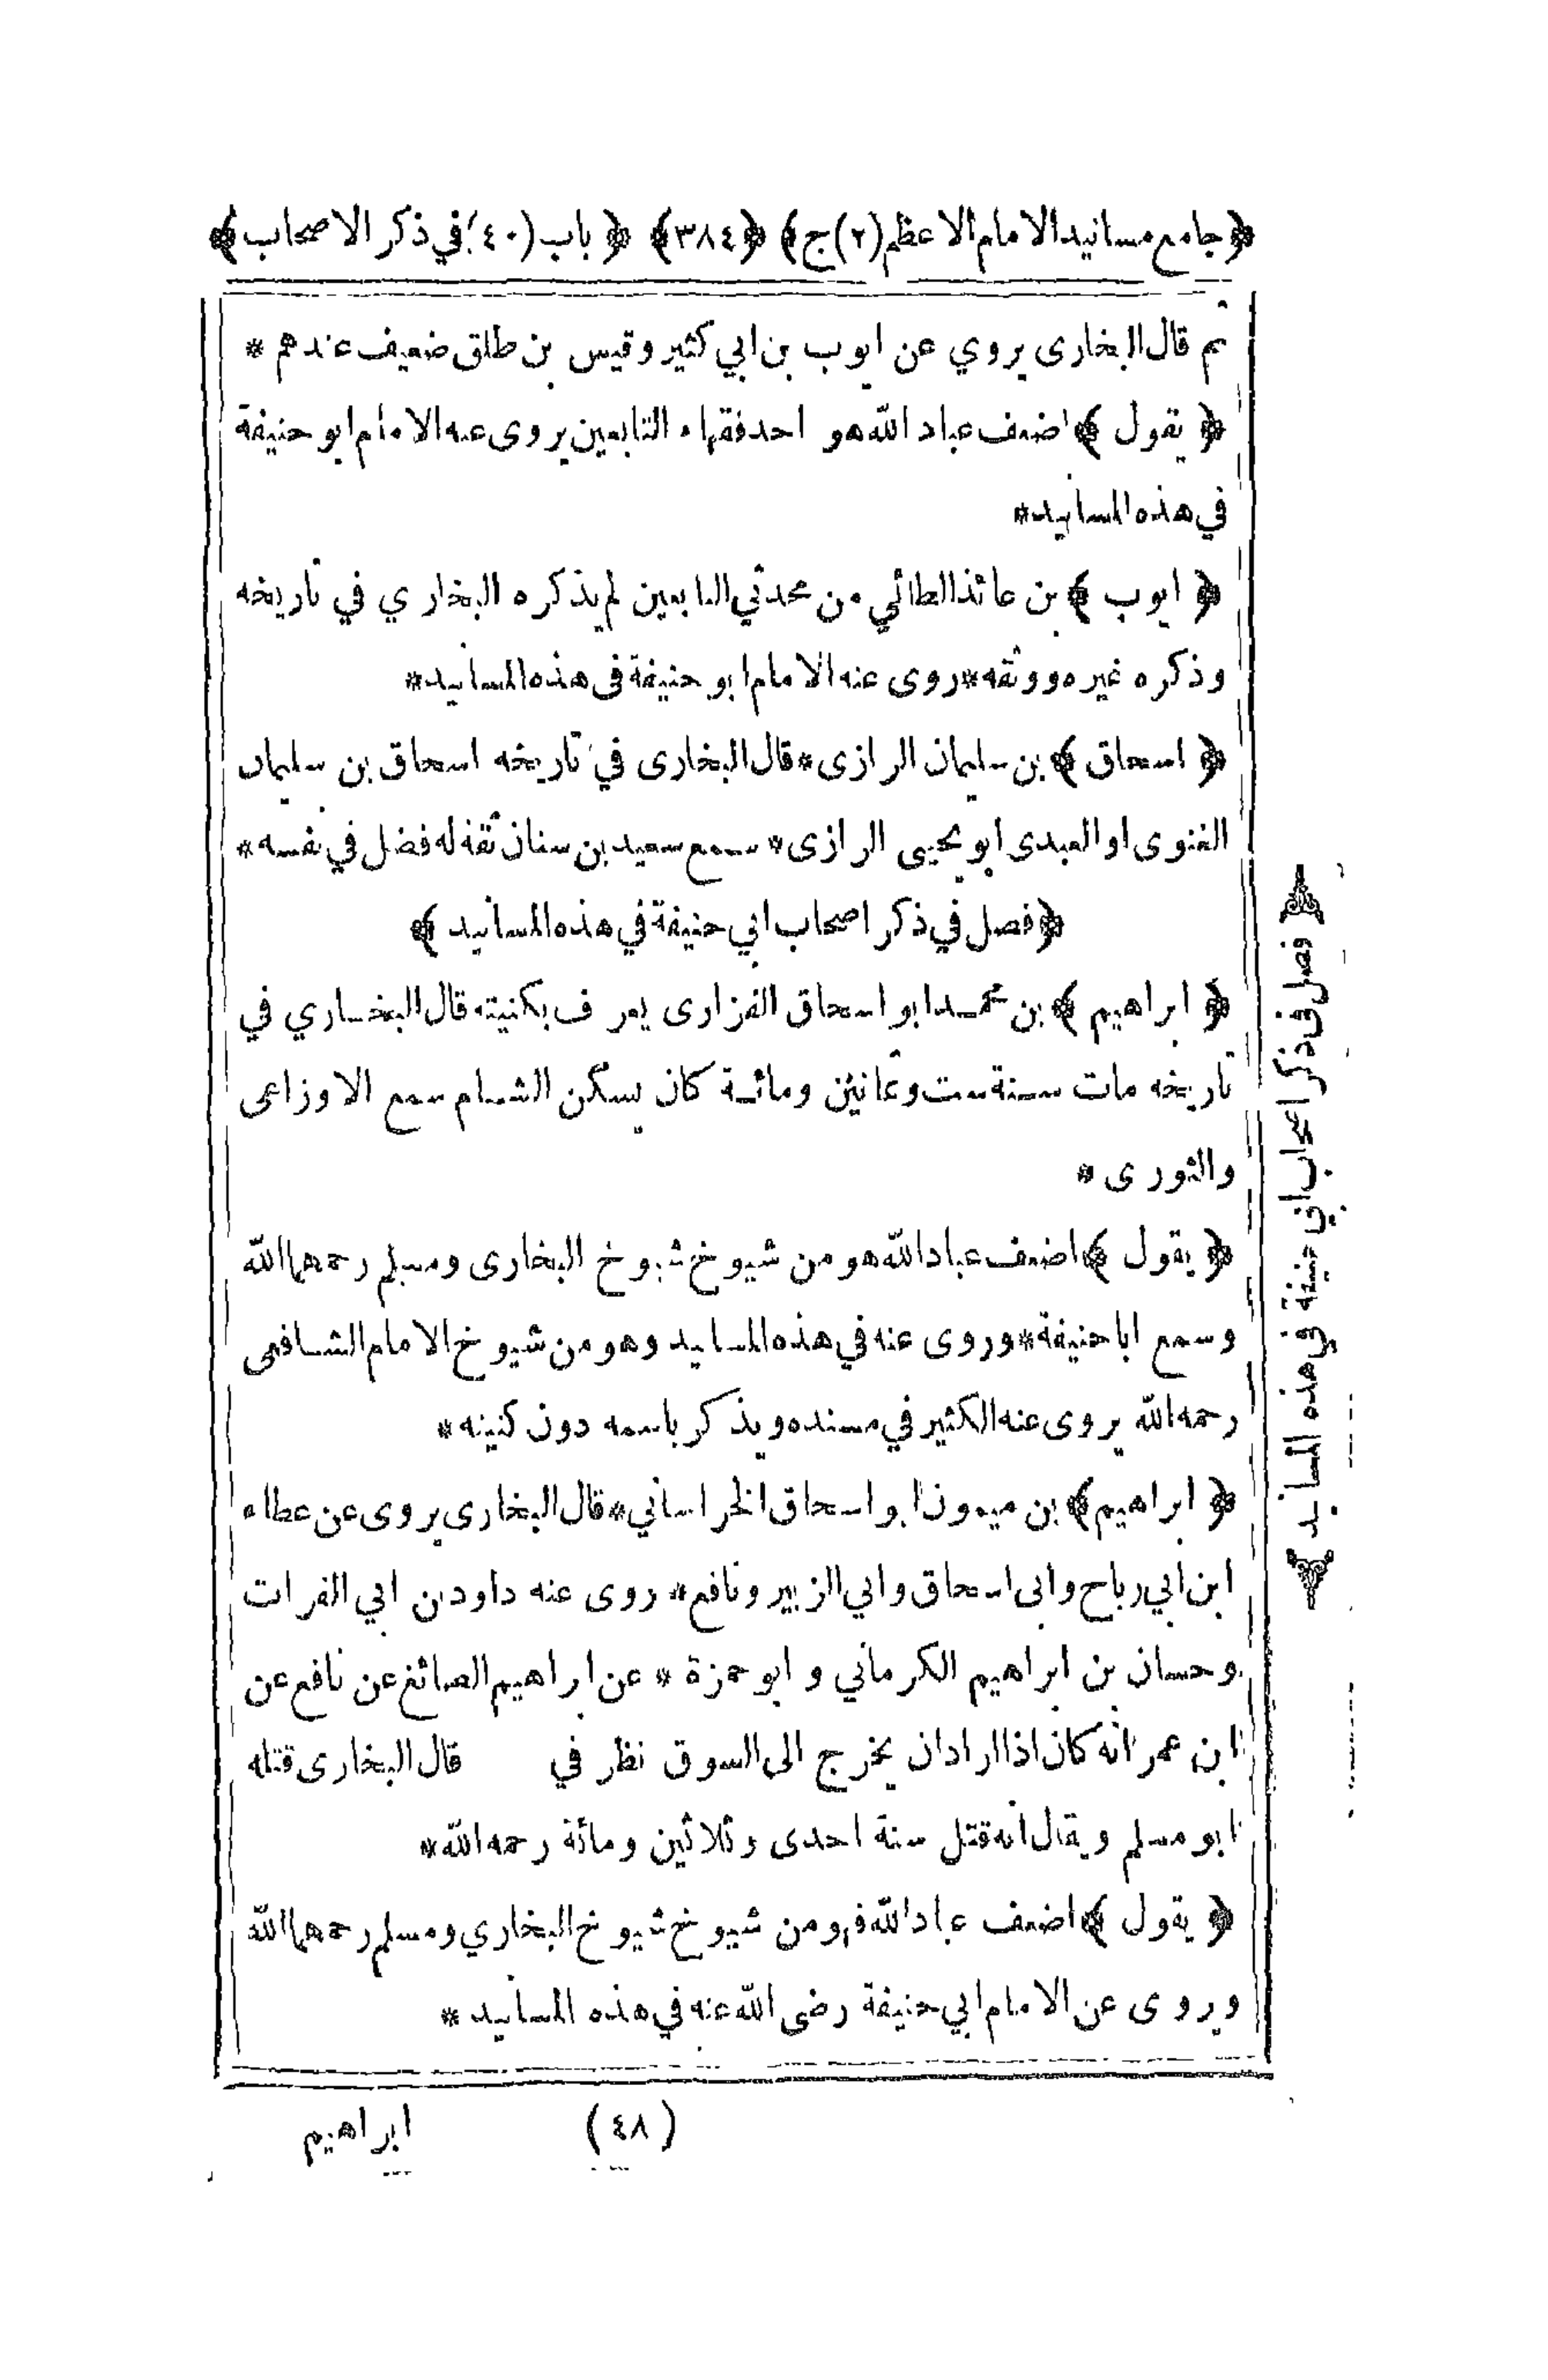 ﴿جامع مسانيد الامام الاعظم (٢) ج﴾ ﴿٣٨٤﴾ ﴿باب (٤٠) في ذكر الاصحاب﴾
ثم قال البخارى يروي عن ايوب بن ابي كثير وقيس بن طلق ضعيف عندهم *
﴿ يقول ﴾ اضعف عباد الله هو احد فقهاء التابعين يروى عنه الامام ابو حنيفة
في هذه المسانيد*
﴿ ايوب ﴾ بن عائذ الطائي من محدثي التابعين لم يذكره البخاري في تاريخه
وذكره غيره ووثقه * روى عنه الامام ابو حنيفة فى هذه المسانيد*
﴿ اسحاق ﴾ بن سليمان الرازى * قال البخارى في تاريخه اسحاق بن سليمان
الغنوى او العبدى ابو يحيى الرازى * سمع سعيد بن سنان ثقة له فضل في نفسه *
﴿ فصل في ذكر اصحاب ابي حنيفة في هذه المسانيد ﴾
﴿ ابراهيم ﴾ بن محمد ابو اسحاق الفزارى يعرف بكنيته قال البخاري في
تاريخه مات سنة ست وثمانين ومائة كان يسكن الشام سمع الاوزاعى
والثورى *
﴿ يقول ﴾ اضعف عباد الله هو من شيوخ شيوخ البخارى ومسلم رحمهما الله
وسمع ابا حنيفة * وروى عنه في هذه المسانيد وهو من شيوخ الامام الشافعى
رحمه الله يروى عنه الكثير في مسنده ويذكر باسمه دون كنيته *
﴿ ابراهيم ﴾ بن ميمون ابو اسحاق الخراساني * قال البخارى يروى عن عطاء
ابن ابي رباح وابى اسحاق وابي الزبير ونافع * روى عنه داود بن ابي الفرات
وحسان بن ابراهيم الكرماني و ابو حمزة * عن ابراهيم الصائغ عن نافع عن
ابن عمر انه كان اذا اراد ان يخرج الى السوق نظر في قال البخارى قتله
ابو مسلم ويقال انه قتل سنة احدى وثلاثين ومائة رحمه الله*
﴿ يقول ﴾ اضعف عباد الله فهو من شيوخ شيوخ البخاري ومسلم رحمهما الله
ويروى عن الامام ابي حنيفة رضى الله عنه في هذه المسانيد *
﴿ فصل فى ذكر اصحاب ابي حنيفة في هذه المسانيد ﴾
(٤٨) ابراهيم